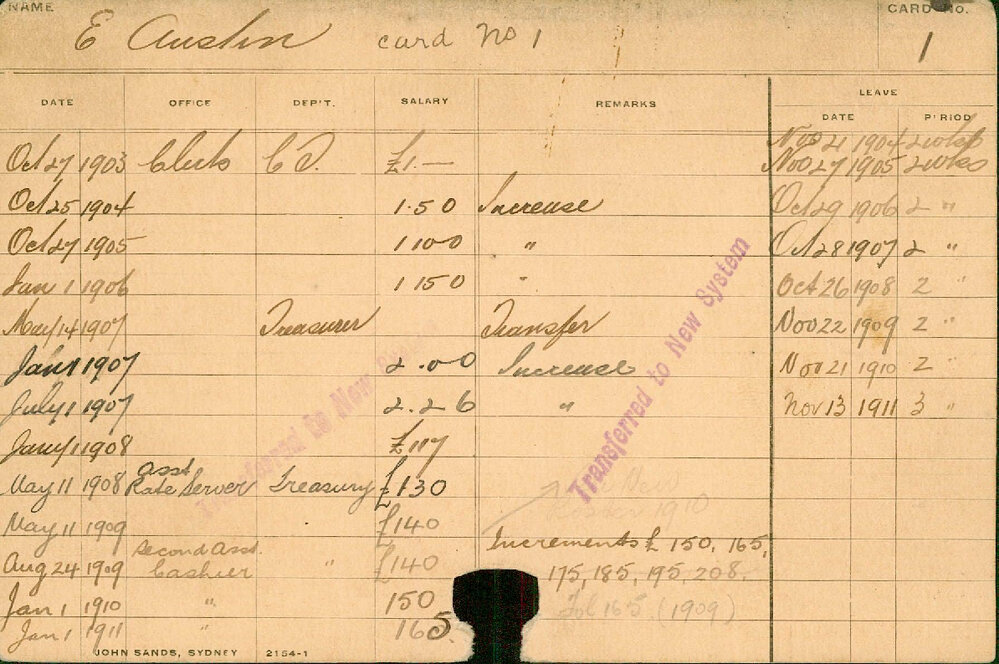 NAME CARD No.
E Austin card No 1 1
DATE OFFICE DEP'T. SALARY REMARKS LEAVE
DATE PERIOD
Nov 21 1904 2 wks
Oct 27 1903 Clerk C.D. £1.— Nov 27 1905 2 wks
Oct 25 1904 1.5 0 Increase Oct 29 1906 2 "
Oct 27 1905 1 10 0 " Oct 28 1907 2 "
Jan 1 1906 1 15 0 " Oct 26 1908 2 "
May 14 1907 Treasurer Transfer Nov 22 1909 2 "
Jan 1 1907 2.0 0 Increase Nov 21 1910 2 "
July 1 1907 2.2 6 " Nov 13 1911 3 "
Jany 1 1908 £117
Asst
May 11 1908 Rate Server Treasury £130
May 11 1909 £140 1910
Second Asst. Increments £ 150, 165,
Aug 24 1909 Cashier " £140 175, 185, 195, 208.
Jan 1 1910 " 150 165 (1909)
Jan 1 1911 " 165
JOHN SANDS, SYDNEY 2154-1
Transferred to New System
Transferred to New